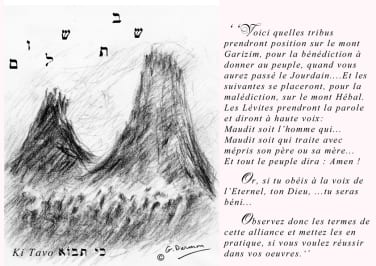 ש ב ת
ש ל ו ם
Ki Tavo כי תבוא
© G. Darmon
‘‘Voici quelles tribus
prendront position sur le mont
Garizim, pour la bénédiction à
donner au peuple, quand vous
aurez passé le Jourdain....Et les
suivantes se placeront, pour la
malédiction, sur le mont Hébal.
Les Lévites prendront la parole
et diront à haute voix:
Maudit soit l’homme qui...
Maudit soit qui traite avec
mépris son père ou sa mère...
Et tout le peuple dira : Amen !
Or, si tu obéis à la voix de
l’Eternel, ton Dieu, ...tu seras
béni...
Observez donc les termes de
cette alliance et mettez les en
pratique, si vous voulez réussir
dans vos oeuvres.’’